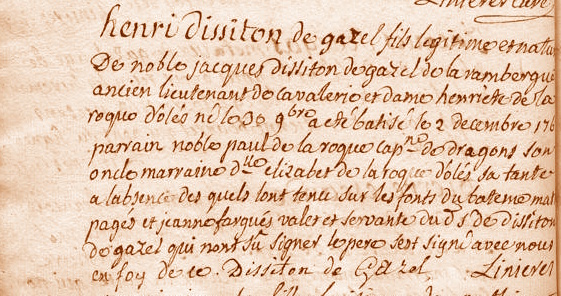 Linieres curé
henri dissiton de gazel fils legitime et natu
De noble jacques dissiton de gazel de la rambergue
ancien lieutenant de cavalerie et dame henriete de la
roque d'olés né le 30 9bre a eté batisé le 2 decembre 176
parrain noble paul de la roque capne de dragons son
oncle marraine dlle elizabet de la roque d'olés sa tante
a labsence des quels lont tenu sur les fonts du bateme
pagés et jeanne fargués valet et servante du d. s. de dissiton
de gazel qui nont sû signer le pere sest signé avec nous
en foy de ce. Dissiton de Gazel, Linieres